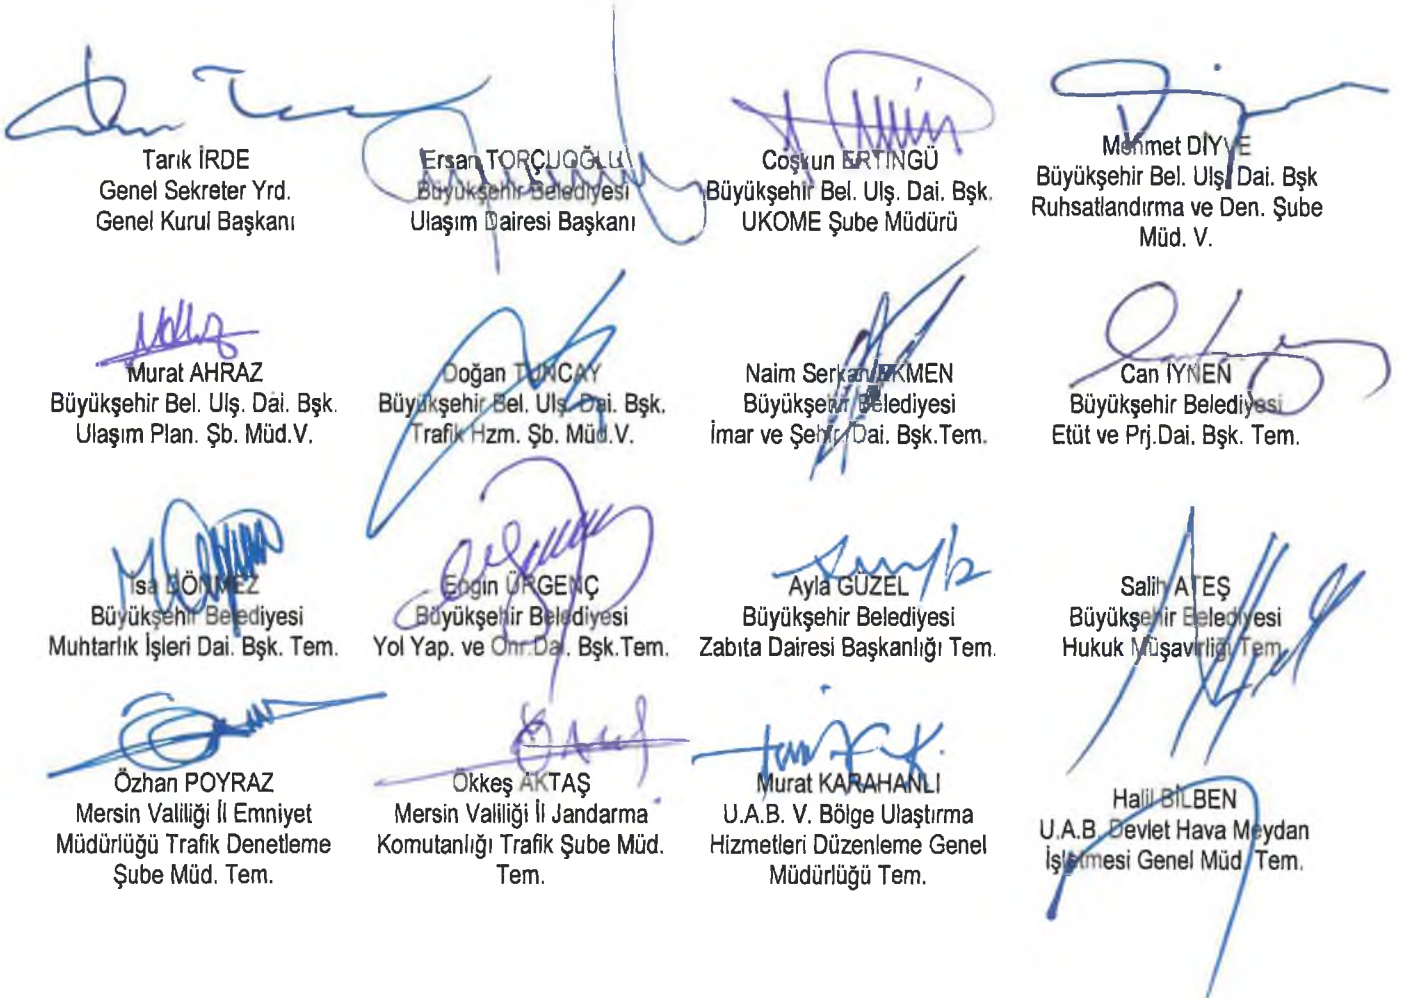 Tarık İRDE
Genel Sekreter Yrd.
Genel Kurul Başkanı
Ersan TORÇUOĞLU
Büyükşehir Belediyesi
Ulaşım Dairesi Başkanı
Coşkun ERTİNGÜ
Büyükşehir Bel. Ulş. Dai. Bşk.
UKOME Şube Müdürü
Mehmet DİYVE
Büyükşehir Bel. Ulş. Dai. Bşk
Ruhsatlandırma ve Den. Şube
Müd. V.
Murat AHRAZ
Büyükşehir Bel. Ulş. Dai. Bşk.
Ulaşım Plan. Şb. Müd.V.
Doğan TUNCAY
Büyükşehir Bel. Ulş. Dai. Bşk.
Trafik Hzm. Şb. Müd.V.
Naim Serkan
Büyükşehir Belediyesi
İmar ve Şehir. Dai. Bşk.Tem.
Can İYNEN
Büyükşehir Belediyesi
Etüt ve Prj.Dai. Bşk. Tem.
İsa DÖNMEZ
Büyükşehir Belediyesi
Muhtarlık İşleri Dai. Bşk. Tem.
Engin ÜRGENÇ
Büyükşehir Belediyesi
Yol Yap. ve Onr.Dai. Bşk.Tem.
Ayla GÜZEL
Büyükşehir Belediyesi
Zabıta Dairesi Başkanlığı Tem.
Salih ATEŞ
Büyükşehir Belediyesi
Hukuk Müşavirliği Tem.
Özhan POYRAZ
Mersin Valiliği İl Emniyet
Müdürlüğü Trafik Denetleme
Şube Müd. Tem.
Ökkeş AKTAŞ
Mersin Valiliği İl Jandarma
Komutanlığı Trafik Şube Müd.
Tem.
Murat KARAHANLI
U.A.B. V. Bölge Ulaştırma
Hizmetleri Düzenleme Genel
Müdürlüğü Tem.
Halil BİLBEN
U.A.B. Devlet Hava Meydan
İşletmesi Genel Müd. Tem.